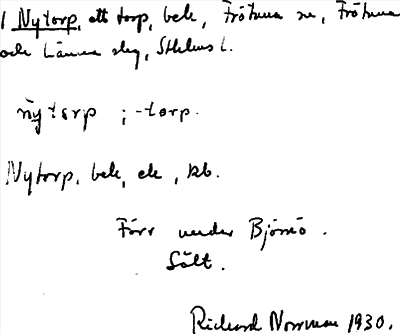 1 Nytorp, ett torp, beb., Frötuna sn, Frötuna
och Länna slg, Sthlms l.
nytorp ; -torp.
Nytorp, beb, ek, kb.
Förr under Björnö.
Sålt.
Richard Norrman 1930.